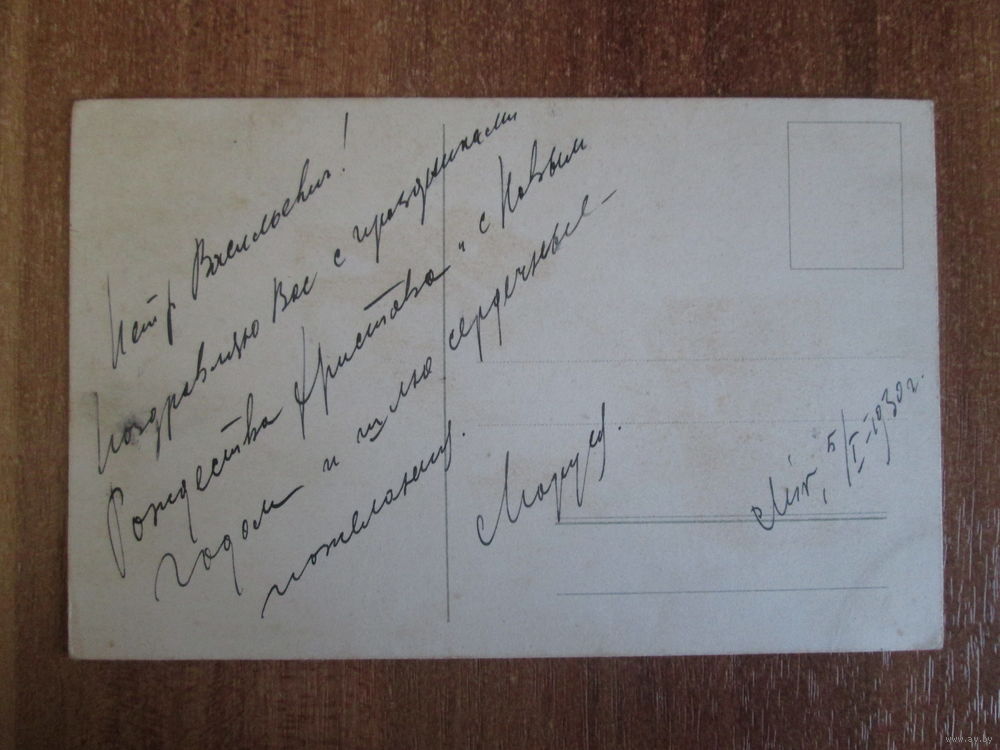 Петр Васильевич!
поздравляю Вас с праздниками
Рождества Христова " с Новым
годом и шлю сердечные
пожелания.
Маруся.
5/I-1930 г.
www.ay.by